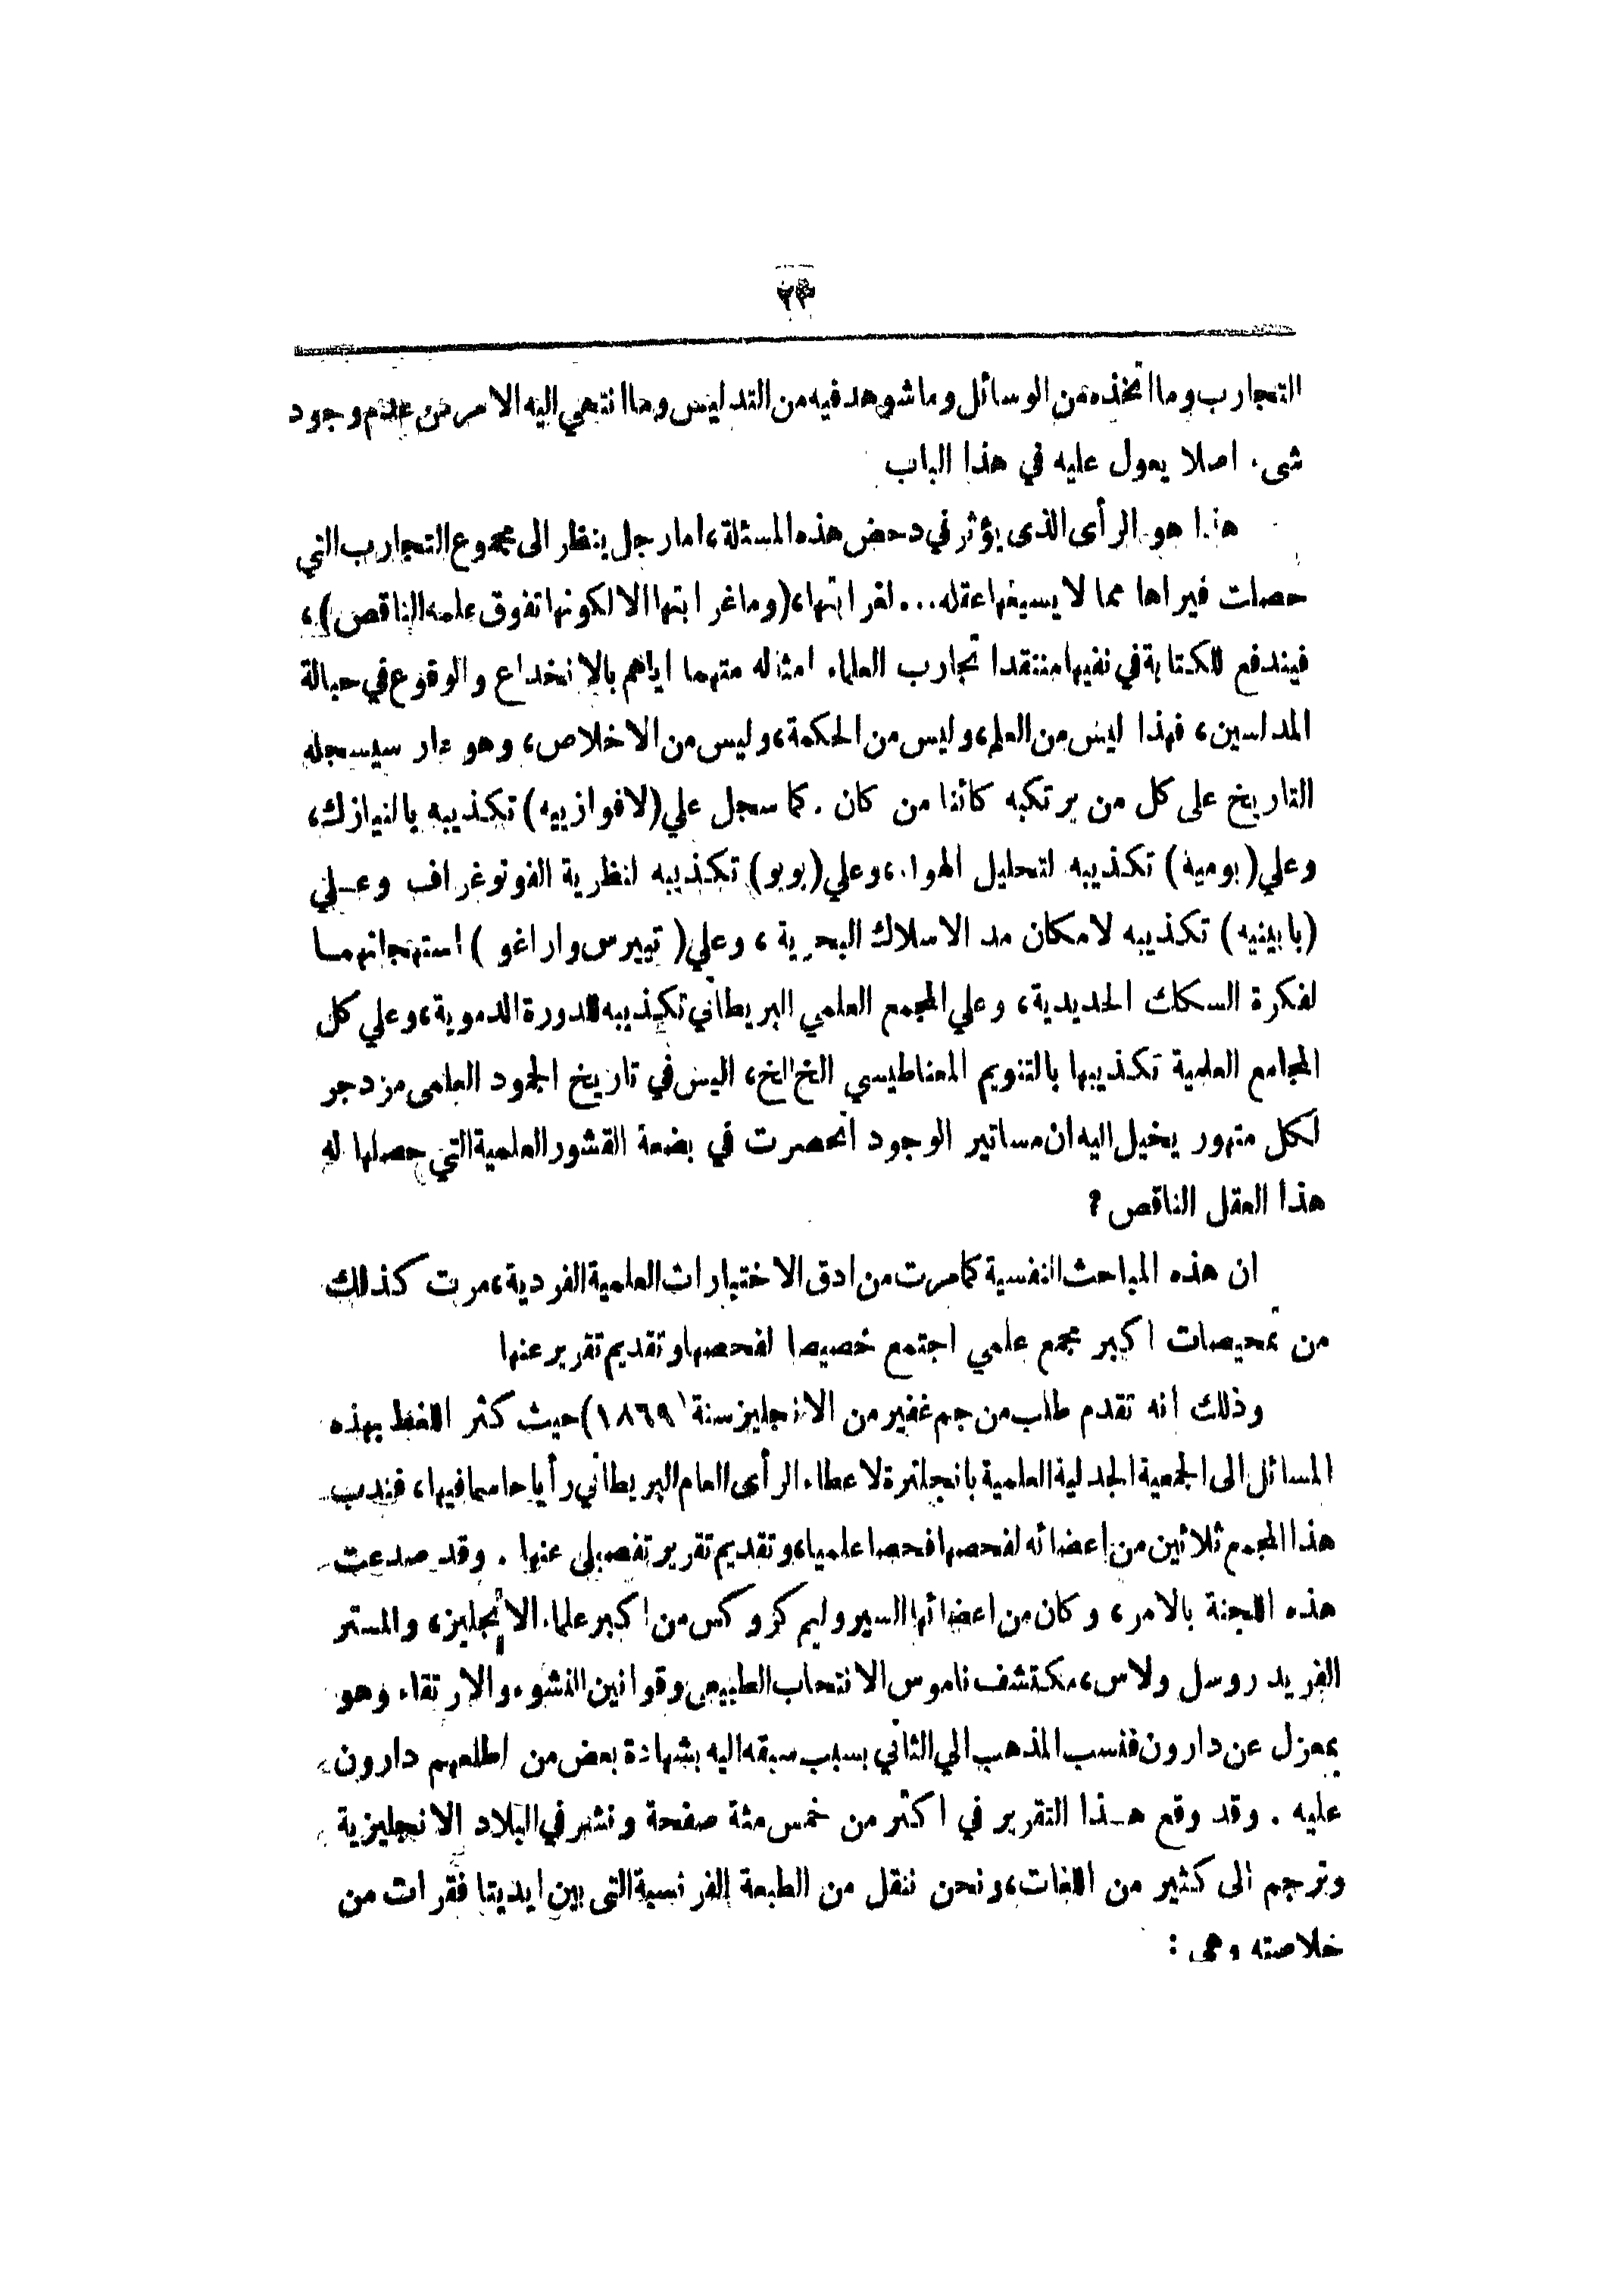 التجارب وما اتخذه من الوسائل وما شوهد فيه من التدليس وما انتهي اليه الامر من عدم وجود
شىء اصلا يعول عليه في هذا الباب
هذا هو الرأى الذى يؤثر في دحض هذه المسئلة، اما رجل ينظر الى مجموع التجارب التي
حصلت فيراها مما لا يسيغها عقله... لغرابتها، (وما غرابتها الا لكونها تفوق علمه الناقص)،
فيندفع للكتابة في نفيها منتقدا تجارب العلماء امثاله متهما اياهم بالانخداع والوقوع في حبالة
المدلسين، فهذا ليس من العلم، وليس من الحكمة، وليس من الاخلاص، وهو عار سيسجله
التاريخ على كل من يرتكبه كائنا من كان . كما سجل علي (لافوازييه) تكذيبه بالنيازك،
وعلي (بومية) تكذيبه لتحليل الهواء، وعلي (بويو) تكذيبه لنظرية الفونوغراف وعلي
(بابينيه) تكذيبه لامكان مد الاسلاك البحرية، وعلي (تييرس واراغو) استهجانهما
لفكرة السكك الحديدية، وعلي المجمع العلمي البريطاني تكذيبه للدورة الدموية، وعلي كل
المجامع العلمية تكذيبها بالتنويم المغناطيسي الخ الخ، اليس في تاريخ الجمود العلمى مزدجر
لكل متهور يخيل اليه ان مساتير الوجود انحصرت في بضعة القشور العلمية التي حصلها له
هذا العقل الناقص ؟
ان هذه المباحث النفسية كما مرت من ادق الاختبارات العلمية الفردية، مرت كذلك
من تمحيصات اكبر مجمع علمي اجتمع خصيصا لفحصها وتقديم تقرير عنها
وذلك انه تقدم طلب من جم غفير من الانجليز سنة ١٨٦٩) حيث كثر اللغط بهذه
المسائل الى الجمعية الجدلية العلمية بانجلترة لاعطاء الرأى العام البريطاني رأيا حاسما فيها، فندب
هذا المجمع ثلاثين من اعضائه لفحصها فحصا علميا، وتقديم تقرير تفصيلى عنها . وقد صدعت
هذه اللجنة بالامر، وكان من اعضائها السير وليم كروكس من اكبر علماء الانجليز، والمستر
الفريد روسل ولاس، مكتشف ناموس الانتخاب الطبيعى وقوانين النشوء والارتقاء وهو
بمعزل عن دارون فنسب المذهب الي الثاني بسبب سبقه اليه بشهادة بعض من اطلعهم دارون
عليه . وقد وقع هذا التقرير في اكثر من خمس مئة صفحة ونشر في البلاد الانجليزية
وترجم الى كثير من اللغات، ونحن ننقل من الطبعة الفرنسية التى بين ايدينا فقرات من
خلاصته وهى :